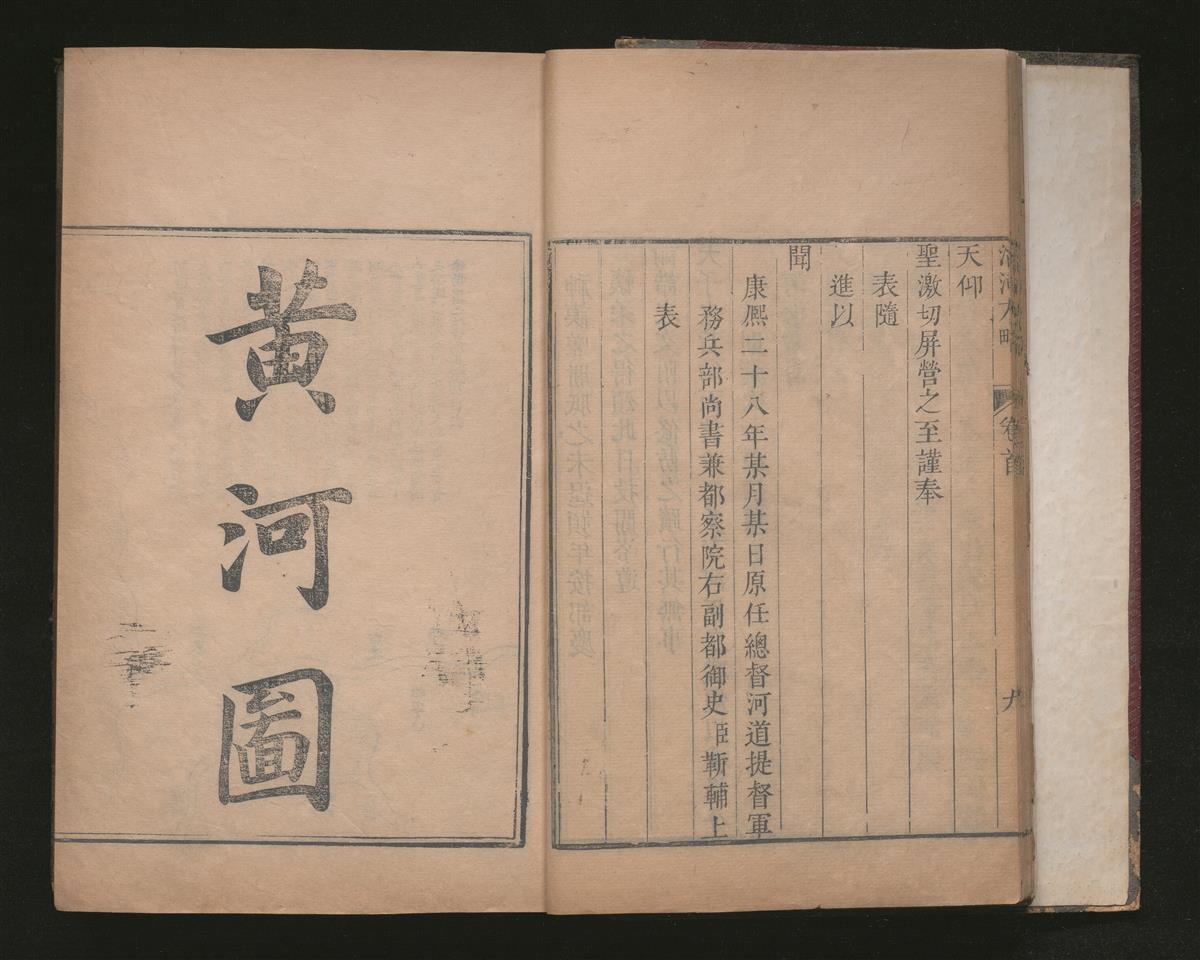 治河方略 卷首 九
天仰
聖激切屏營之至謹奉
表隨
進以
聞
康熈二十八年某月某日原任總督河道提督軍
務兵部尚書兼都察院右副都御史臣靳輔上
表
黃河圖